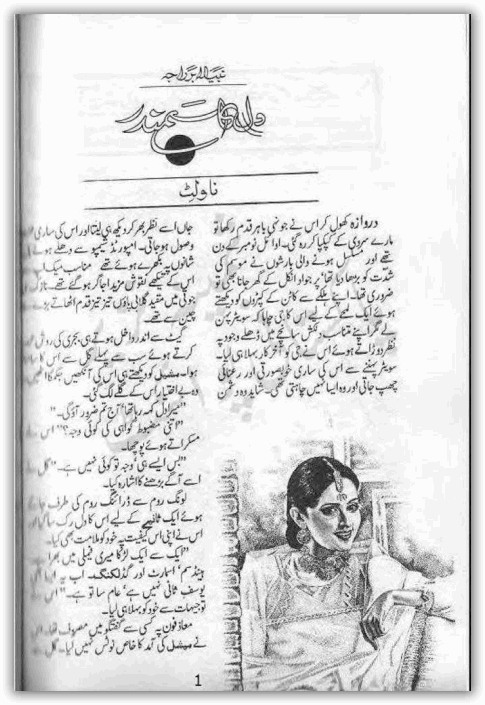 نبیلہ ابر راجہ
دل اک سمندر
ناولٹ
دروازہ کھول کر اس نے جونہی باہر قدم رکھا تو
مارے سردی کے کپکپا کر رہ گئی۔ اوائل نومبر کے دن
تھے اور مسلسل ہونے والی بارشوں نے موسم کی
شدت کو بڑھا دیا تھا پر جواد انکل کے گھر جانا بھی تو
ضروری تھا۔ اپنے ہلکے سے کاٹن کے کپڑوں کو دیکھتے
ہوئے ایک لمحے کے لیے اس کا جی چاہا کہ سویٹر پہن
لے مگر اپنے متناسب دلکش سانچے میں ڈھلے وجود پہ
نظر دوڑاتے ہوئے اس نے جی کو آخر کار بہلا ہی لیا۔
سویٹر پہننے سے اس کی ساری خوبصورتی اور رعنائی
چھپ جاتی اور وہ ایسا نہیں چاہتی تھی۔ شاید وہ دشمن
جاں اسے نظر بھر کر دیکھ ہی لیتا اور اس کی ساری
وصول ہو جاتی۔ امپورٹڈ شیمپو سے دھلے ہوئے
شانوں پہ بکھرے ہوئے تھے۔ مناسب میک اپ
اس کے تیکھے نقوش مزید اجاگر ہو گئے تھے۔
جوتی میں مقید گلابی پاؤں تیز تیز قدم اٹھاتے بڑے
چین سے تھے۔
گیٹ سے اندر داخل ہوتے ہی بجری کی روش
کرتے ہوئے سب سے پہلے گل سے اس کا سامنا
ہوا۔ مشعل کو دیکھتے ہی اس کی آنکھیں جگمگا
وہ بے اختیار اس کے گلے لگ گئی۔
"میرا دل کہہ رہا تھا آج تم ضرور آؤ گی۔"
"اتنی مضبوط گواہی کی کوئی وجہ؟" اس نے
مسکراتے ہوئے پوچھا۔
"بس ایسے ہی وجہ تو کوئی نہیں ہے۔" گل نے
اسے آگے بڑھنے کا اشارہ کیا۔
لونگ روم سے ڈرائنگ روم کی طرف جاتے
ہوئے ایک ثانیے کے لیے اس کا دل رک سا گیا
اس نے اپنی اس کیفیت پہ خود کو ملامت بھی کیا۔
"ایک سے ایک لڑکا میری فیملی میں بھرا
ہینڈسم، اسمارٹ اور گڈ لکنگ۔ اب یہ ایسا
یوسف ثانی نہیں ہے، عام سا تو ہے" اس
توجیہات سے خود کو بہلا ہی لیا۔
معاذ فون پہ کسی سے گفتگو میں مصروف تھا۔
نے مشعل کی آمد کا خاص نوٹس نہیں لیا۔ گل
1